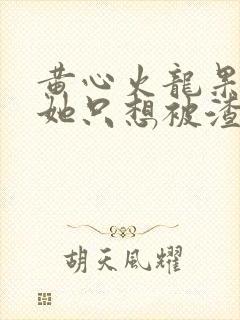 黄心火龍果
她只想被渣
胡天風耀